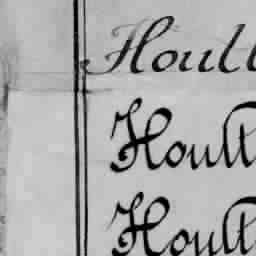 Hoult
Hoult
Hoult